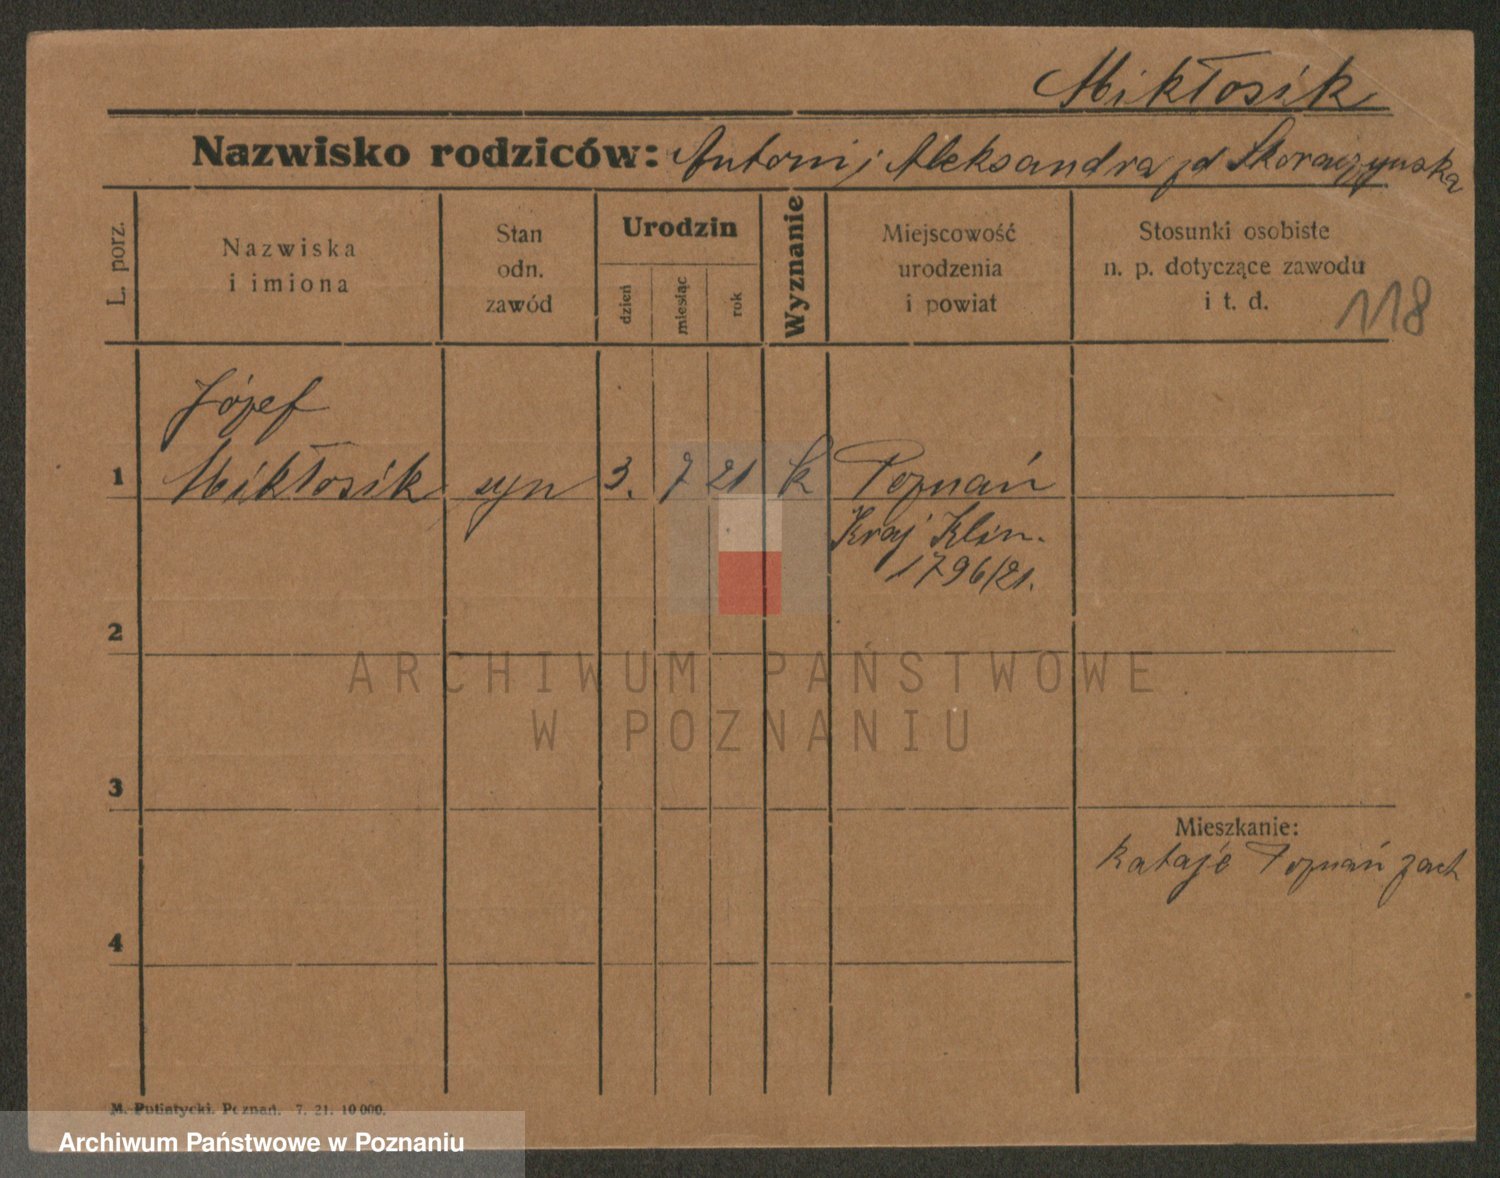 Mikłosik
Nazwisko rodziców: Antoni i Aleksandra zd Skoraczyńska
L. porz.
Nazwiska
i imiona
Stan
odn.
zawód
Urodzin
dzień
miesiąc
rok
Wyznanie
Miejscowość
urodzenia
i powiat
Stosunki osobiste
n. p. dotyczące zawodu
i t. d.
118
Józef
1 Mikłosik syn 3. 7 21 k Poznań
Kraj Klin.
1796/21.
2
ARCHIWUM PAŃSTWOWE
W POZNANIU
3
Mieszkanie:
Rataje Poznań zach
4
M. Putiatycki. Poznań. 7. 21. 10 000.
Archiwum Państwowe w Poznaniu